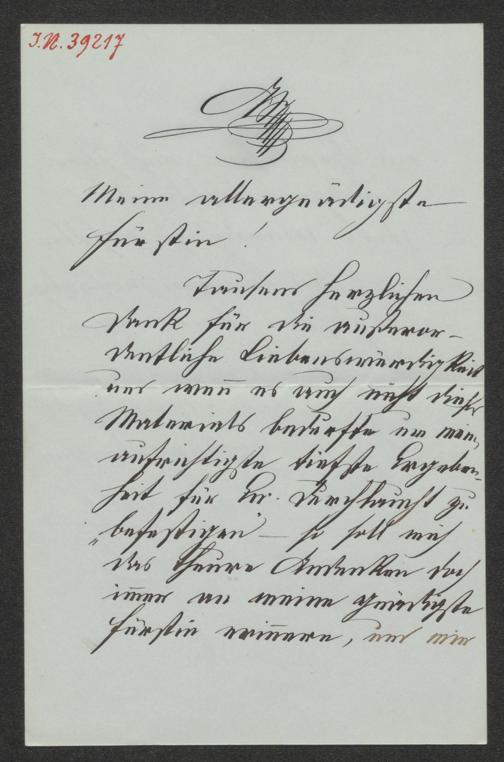 I.N. 39217
Meine allergnädigste
Fürstin!
Tausend herzlichen
Dank für die außeror-
dentliche Liebenswürdigkeit
und wenn es auch nicht dieses
Materials bedurfte um meine
aufrichtigste tiefste Ergeben-
heit für Eu. Durchlaucht zu
„befestigen“ – so soll mich
das theure Andenken doch
immer an meine gnädigste
Fürstin erinnern, und